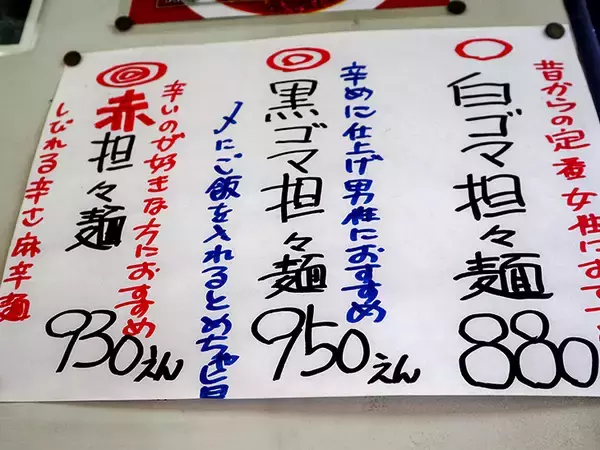 昔からの定番女性におす
白ゴマ担々麺
880
辛めに仕上げ男性におすすめ
黒ゴマ担々麺
950えん
〆にご飯を入れるとめちゃ旨
辛いのが好きな方におすすめ
赤担々麺
930えん
しびれる辛さ麻辛麺